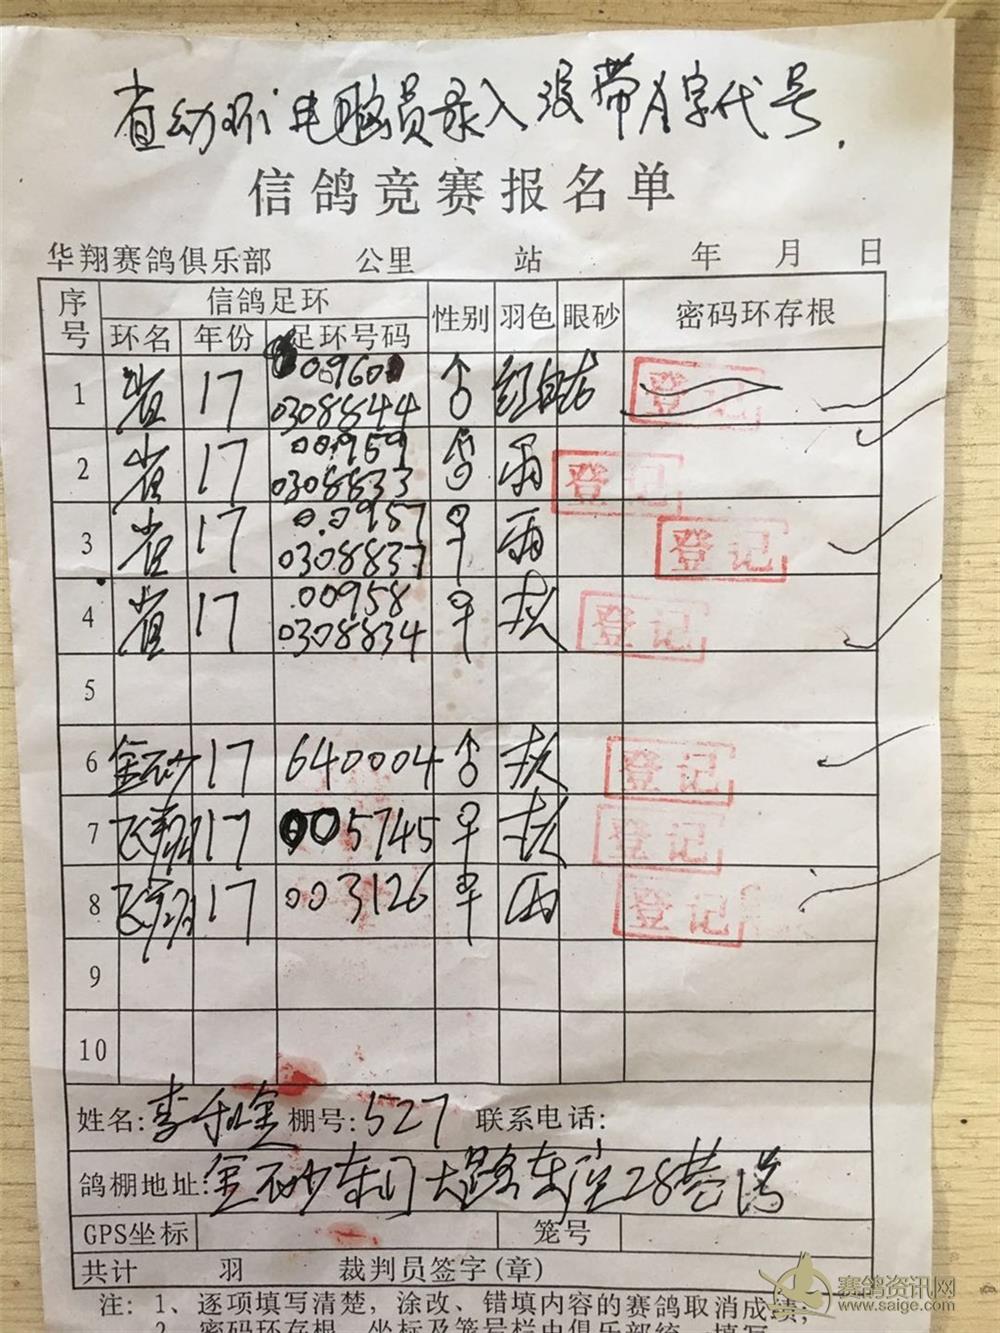 省幼环电脑员录入没带A字代号.
信鸽竞赛报名单
华翔赛鸽俱乐部 公里 站 年 月 日
序号 信鸽足环 性别 羽色 眼砂 密码环存根
环名 年份 足环号码
1 省 17 00960 0308844 ♂ 登记
2 省 17 00959 0308833 雨 登记
3 省 17 00957 0308837 ♀ 雨 登记
4 省 17 00958 0308834 ♀ 灰 登记
5
6 金砂 17 640004 ♂ 灰 登记
7 飞翔 17 005745 ♀ 灰 登记
8 飞翔 17 003126 ♀ 雨 登记
9
10
姓名: 李 棚号: 527 联系电话:
鸽棚地址: 金砂东门大路东 28巷
GPS坐标 笼号
共计 羽 裁判员签字(章)
注: 1、逐项填写清楚, 涂改、错填内容的赛鸽取消成绩;
2、密码环存根、坐标及笼号栏由俱乐部统一填写
赛鸽资讯网
www.saige.com